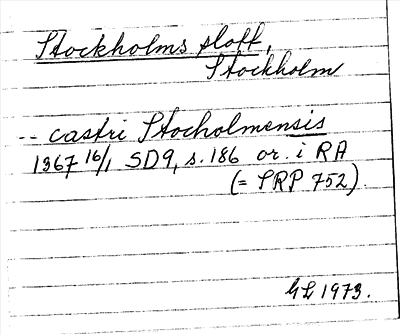 Stockholms slott,
Stockholm
-- castri Stocholmensis
1367 16/1 SD9, s. 186 or. i RA
(= SRP 752).
GL 1973.